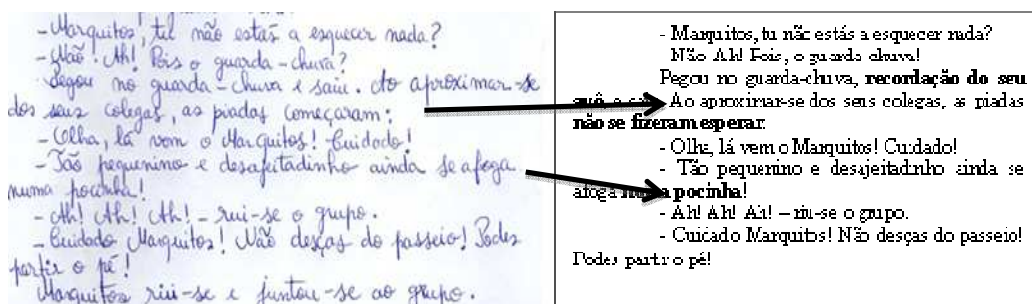 - Marquitos, tu não estás a esquecer nada?
- Não! Ah! Pois o guarda-chuva?
Pegou no guarda-chuva e saiu. Ao aproximar-se
dos seus colegas, as piadas começaram:
- Olha, lá vem o Marquitos! Cuidado!
- Tão pequenino e desafeitadinho ainda se afoga
numa pocinha!
- Ah! Ah! Ah! - rui-se o grupo.
- Cuidado Marquitos! Não desças do passeio! Podes
partir o pé!
Marquitos riu-se e juntou-se ao grupo.
- Marquitos, tu não estás a esquecer nada?
- Não Ah! Pois, o guarda chuva!
Pegou no guarda-chuva, recordação do seu
avô, e Ao aproximar-se dos seus colegas, as piadas
não se fizeram esperar:
- Olha, lá vem o Marquitos! Cuidado!
- Tão pequenino e desajeitadinho ainda se
afoga pocinha!
- Ah! Ah! Ah! – riu-se o grupo.
- Cuidado Marquitos! Não desças do passeio!
Podes partir o pé!